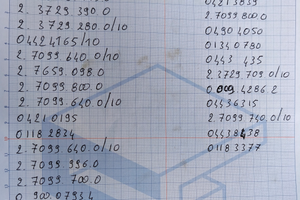 2. 3729 390. 0
2. 3729 280.0/10
0442 4165/10
2. 7099 640. 0/10
2. 7659. 098.0
2. 7099. 800.0
2. 7099. 640 0/10
0421 0195
0118 2834
2. 7099 640. 0/10
2. 7099. 396.0
2. 7099. 700.0
0. 900.0793.4
0421 3839
2.7099 800.0
0490 4050
0134 0780
0443 435
2.3729 709 0/10
4286.2
0443 6315
2. 7099. 750.0/10
0118 3377